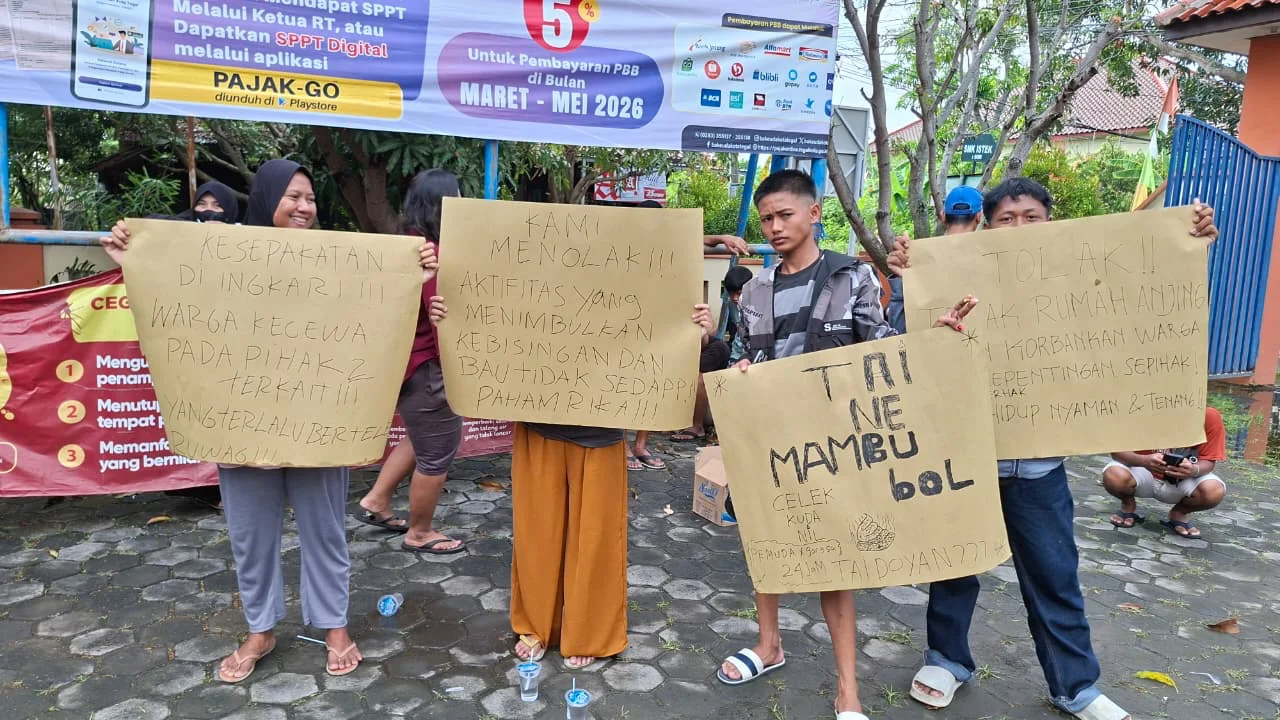 Mendapat SPPT
Melalui Ketua RT, atau
Dapatkan SPPT Digital
melalui aplikasi
PAJAK-GO
diunduh di Playstore
5%
Untuk Pembayaran PBB
di Bulan
MARET - MEI 2026
Pembayaran PBB dapat Melalui
Alfamart
Indomaret
blibli
gopay
BCA
bsi
SMK ISTEK
CEG
1
Mengu
penam
2
Menutu
tempat p
3
Memanfa
yang berni
KESEPAKATAN
DINGKARI!!!
WARGA KECEWA
PADA PIHAK 2
TERKAIT!!!
YANG TERLALU BERTEL
KAMI
MENOLAK!!!
AKTIFITAS YANG
MENIMBULKAN
KEBISINGAN DAN
BAU TIDAK SEDAPP!
PAHAM RIKA!!!
* TAI *
NE
MAMBU
BOL
CELEK
KUDA
NIL
PEMUDA
24 JAM TAI DOYAN??? *
TOLAK!!
RUMAH ANJING
KORBANKAN WARGA
EPENTINGAN SEPIHAK!
RHAK
HIDUP NYAMAN & TENANG!!